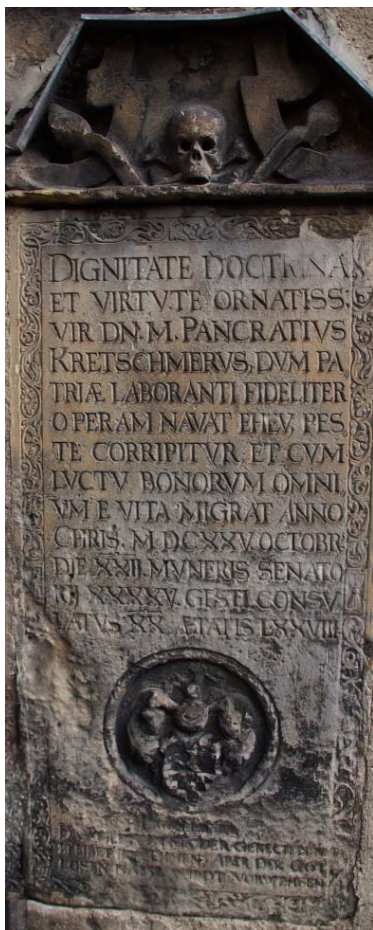 DIGNITATE DOCTRINA
ET VIRTVTE ORNATISS:
VIR DN. M. PANCRATIVS
KRETSCHMERVS, DVM PA
TRIÆ LABORANTI FIDELITER
OPERAM NAVAT EHEV, PES
TE CORRIPITVR ET CVM
LVCTV BONORVM OMNI
VM E VITA MIGRAT ANNO
CHRIS. M DCXXV. OCTOBR
DIE XXII. MVNERIS SENATO
RII XXXXV. GESTI CONSV
LATVS XX. ETATIS LXXVIII
DER GERECHTEN
ABER DER GOT
LOSEN